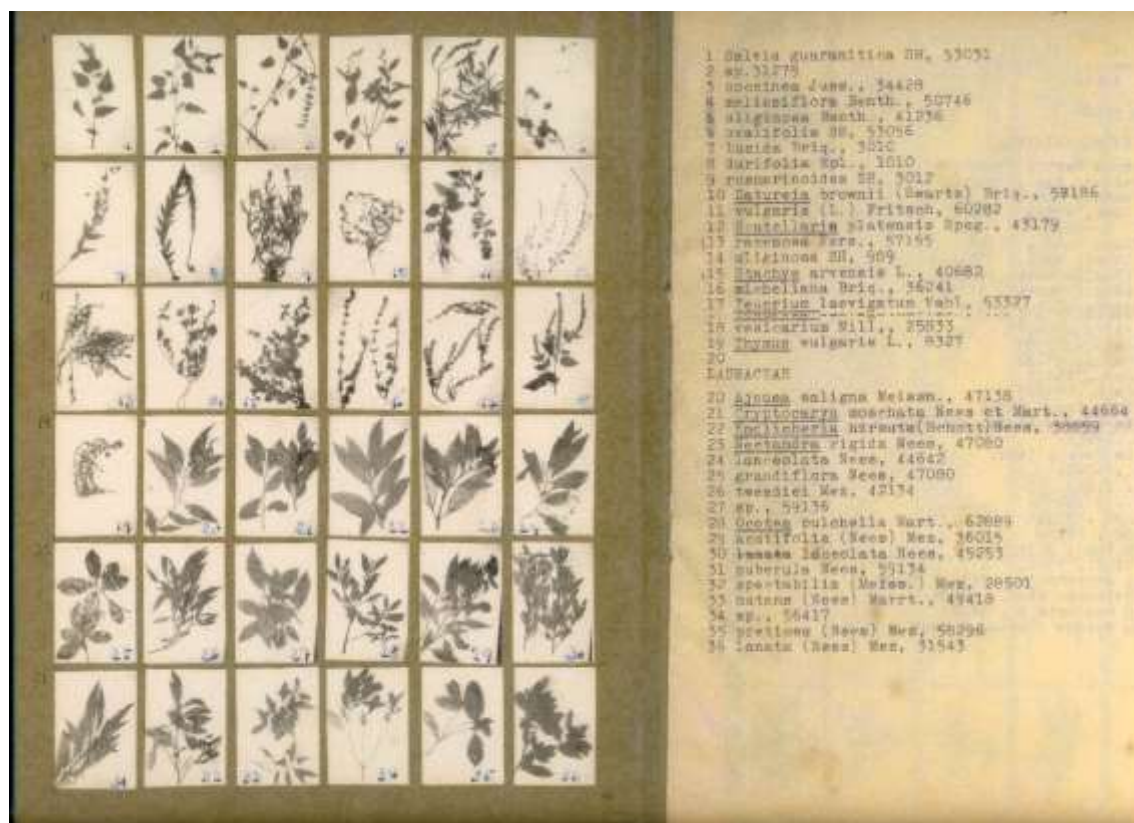 1 Salvia guaranitica SH, 53031
2 sp.31275
3 coccinea Juss., 34428
4 melissiflora Benth., 50746
5 uliginosa Benth., 41236
6 ovalifolia SH, 53056
7 lucida Briq., 3010
8 durifolia Epl., 1010
9 rosmarinoides SH, 3012
10 Satureia brownii (Swartz) Briq.,
11 vulgaris (L.) Fritsch, 60282
12 Scutellaria platensis Speg., 43179
13 racemosa Pers., 57155
14 uliginosa SH, 909
15 Stachys arvensis L., 40682
16 micheliana Briq., 36241
17 Teucrium laevigatum Vahl, 63327
18 vesicarium Mill., 25833
19 Thymus vulgaris L., 8327
20
LAURACEAE
20 Ajouea saligna Meissn., 47138
21 Cryptocarya moschata Nees et Mart., 44664
22 Endlicheria hirsuta(Schott)Nees,
23 Nectandra rigida Nees, 47080
24 lanceolata Nees, 44642
25 grandiflora Nees, 47080
26 tweediei Mez, 42134
27 sp., 59136
28 Ocotea pulchella Mart., 62889
29 acutifolia (Nees) Mez, 36015
30 laceolata Nees, 45253
31 puberula Nees, 59134
32 spectabilis (Meiss.) Mez, 28501
33 catans (Nees) Marrt., 49418
34 sp., 56417
35 pretiosa (Nees) Mez, 58296
36 lanata (Nees) Mez, 31543